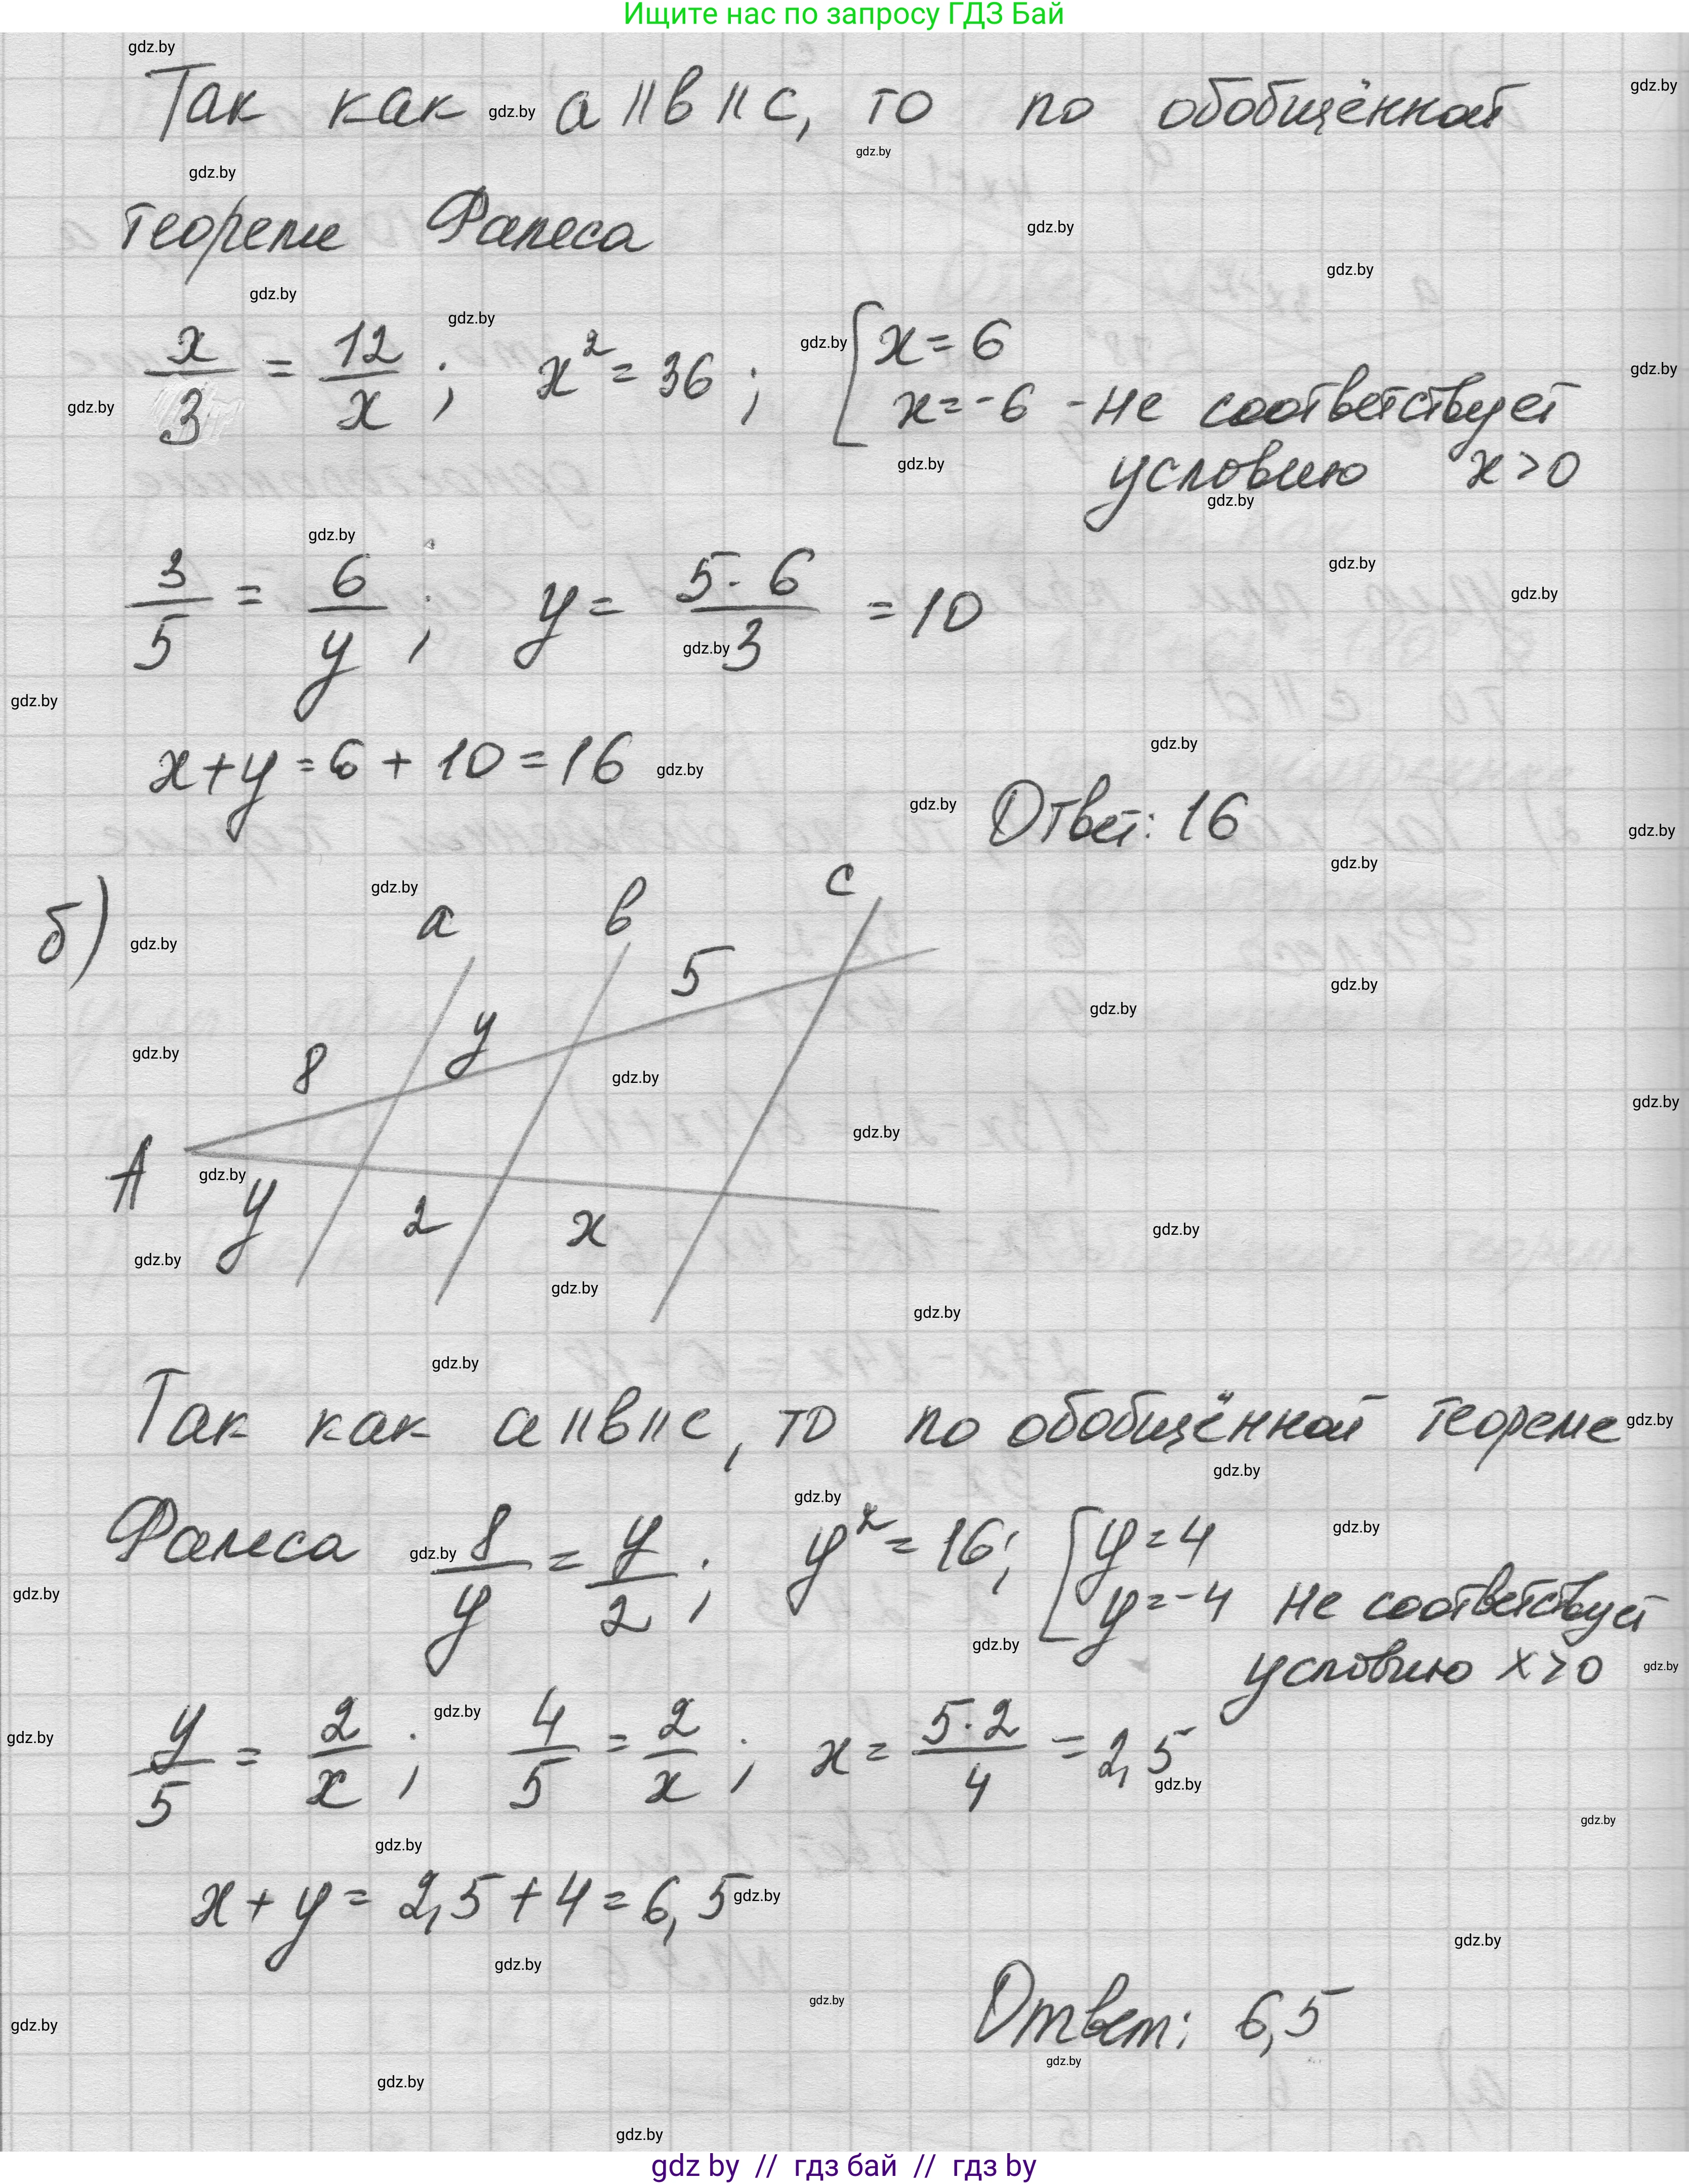 Ищите нас по запросу ГДЗ Бай
Так как a || в || c, то по обобщённой
теореме Фалеса
x/3 = 12/x ; x² = 36 ; [ x = 6
x = -6 - не соответствует
условию x > 0
3/5 = 6/y ; y = 5·6/3 = 10
x + y = 6 + 10 = 16
Ответ: 16
б)
a в c
5
y
8
A
y 2 x
Так как a || в || c, то по обобщённой теореме
Фалеса 8/y = y/2 ; y² = 16 ; [ y = 4
y = -4 не соответствует
условию x > 0
y/5 = 2/x ; 4/5 = 2/x ; x = 5·2/4 = 2,5
x + y = 2,5 + 4 = 6,5
Ответ: 6,5
gdz by // гдз бай // гдз by